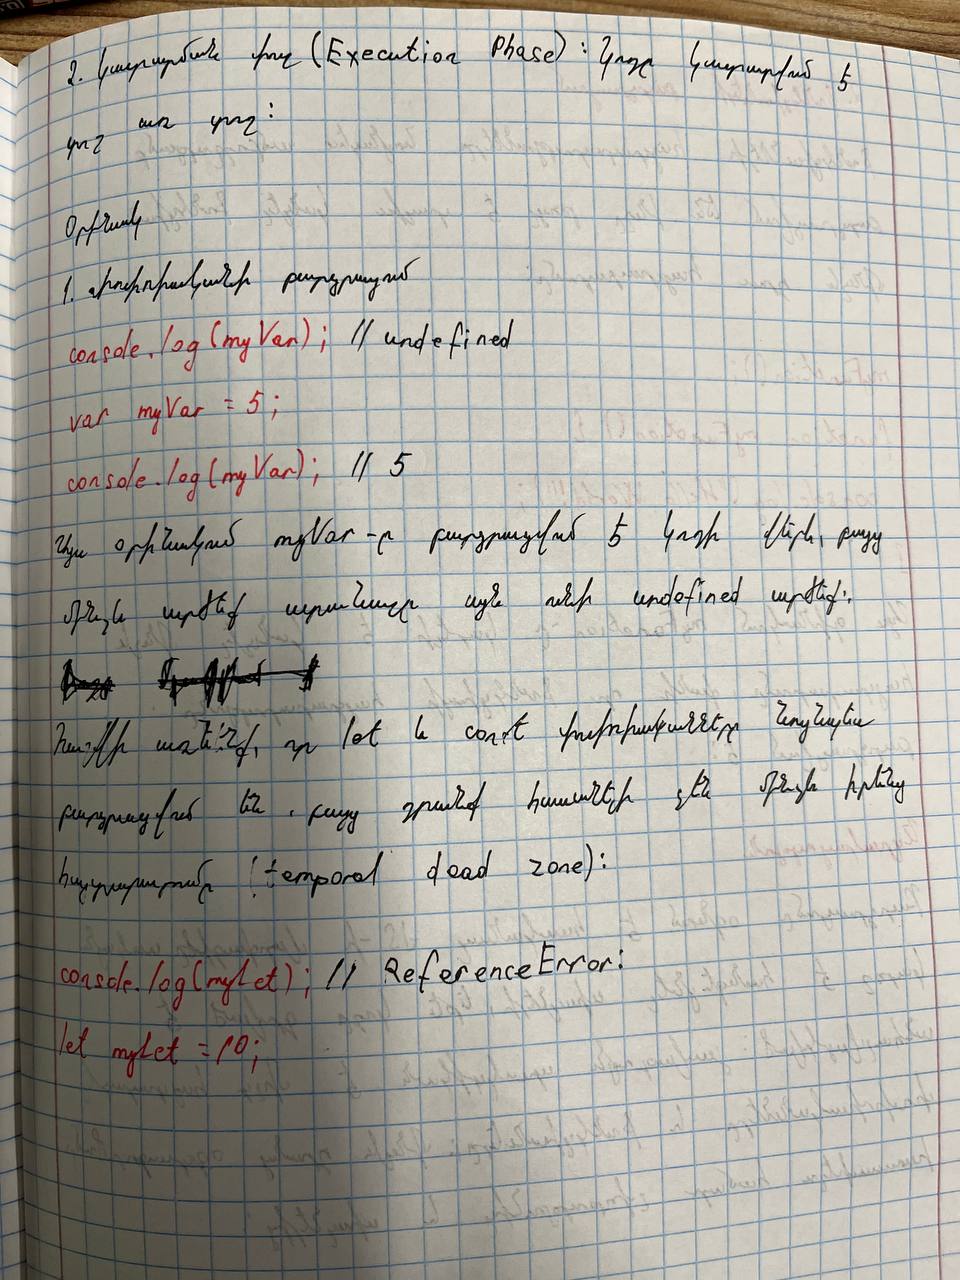 2. Կատարման փուլ (Execution Phase): Կոդը կատարվում է
տող առ տող:
Օրինակ
1. փոփոխականի բարձրացում
console.log(myVar); // undefined
var myVar = 5;
console.log(myVar); // 5
Այս օրինակում myVar-ը բարձրացվում է կոդի վերև, բայց
մինչև արժեք ստանալը այն ունի undefined արժեք:
Հաշվի առե՛ք, որ let և const փոփոխականները նույնպես
բարձրացվում են, բայց դրանք հասանելի չեն մինչև իրենց
հայտարարումը (temporal dead zone):
console.log(myLet); // ReferenceError:
let myLet = 10;